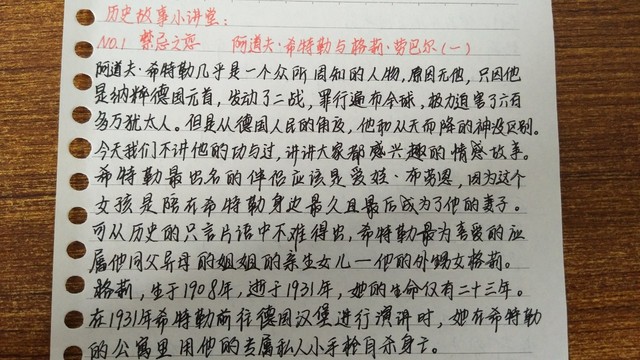 历史故事小讲堂:
NO.1 禁忌之恋 阿道夫·希特勒与格莉·劳巴尔(一)
阿道夫·希特勒几乎是一个众所周知的人物,原因无他,只因他
是纳粹德国元首,发动了二战,罪行遍布全球,极力迫害了六百
多万犹太人。但是从德国人民的角度,他和从天而降的神没区别。
今天我们不讲他的功与过,讲讲大家都感兴趣的情感故事。
希特勒最出名的伴侣应该是爱娃·布劳恩,因为这个
女孩是陪在希特勒身边最久且最后成为了他的妻子。
可从历史的只言片语中不难得出,希特勒最为喜爱的应
属他同父异母的姐姐的亲生女儿—他的外甥女格莉。
格莉,生于1908年,逝于1931年,她的生命仅有二十三年。
在1931年希特勒前往德国汉堡进行演讲时,她在希特勒
的公寓里用他的专属私人小手枪自杀身亡。